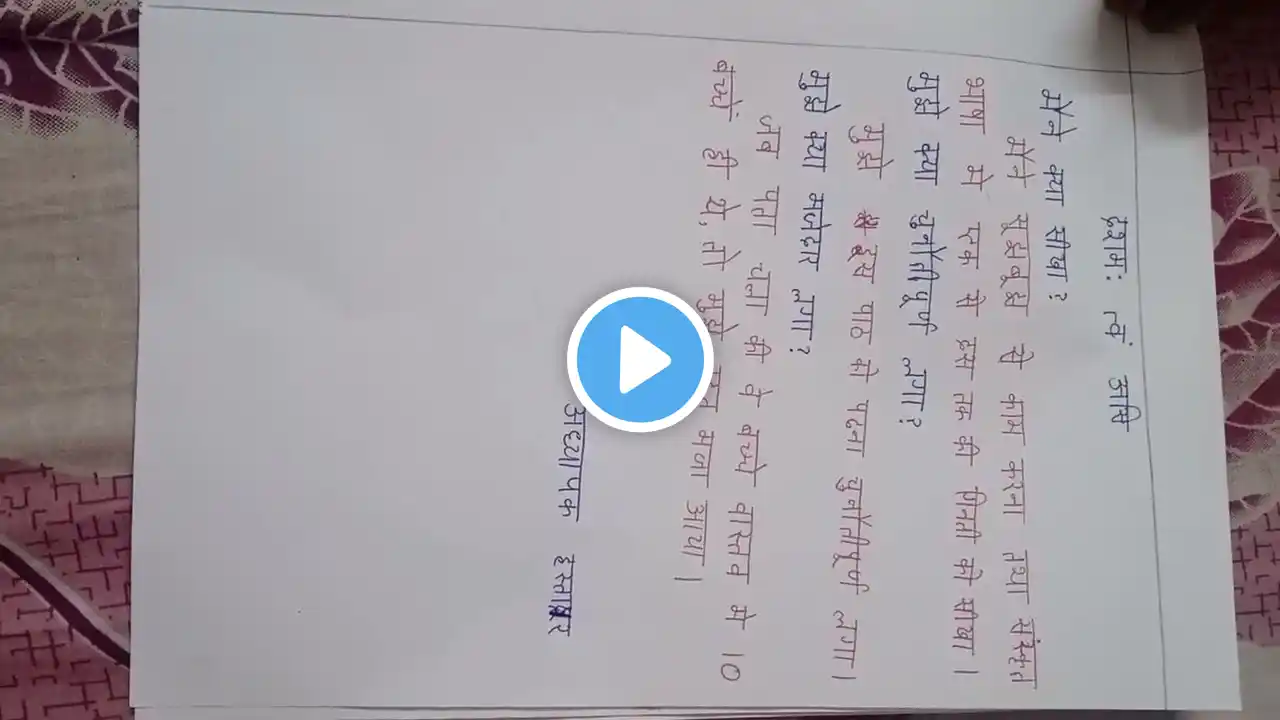 दशमः त्वं असि
मैंने क्या सीखा?
मैंने सूझबूझ से काम करना तथा संस्कृत
भाषा मे एक से दस तक की गिनती को सीखा।
मुझे क्या चुनौतीपूर्ण लगा?
मुझे इस पाठ को पढना चुनौतीपूर्ण लगा।
मुझे क्या मजेदार लगा?
जब पता चला की वे बच्चे वास्तव मे 10
बच्चें ही थे, तो मुझे मजा आया।
अध्यापक हस्ताक्षर